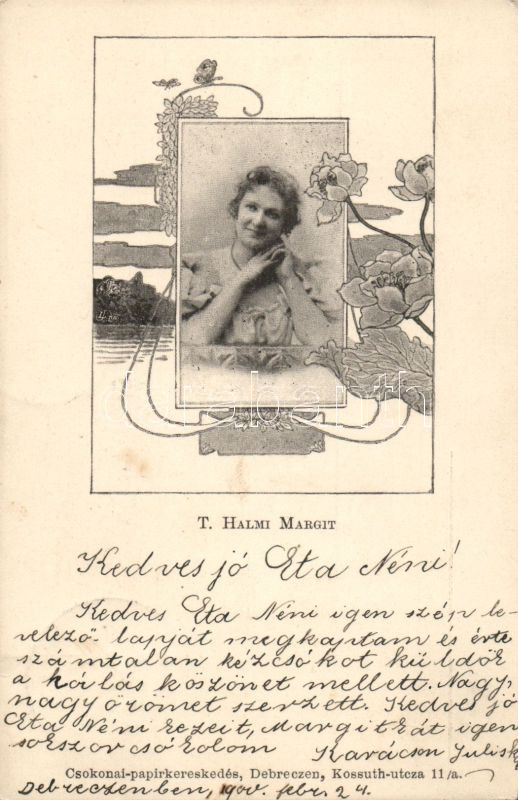 T. Halmi Margit
Kedves jó Eta Néni!
Kedves Eta Néni igen szép le-
velező-lapját megkaptam és érte
számtalan kézcsókot küldök
a hálás köszönet mellett. Nagy,
nagy örömet szerzett. Kedves jó
Eta Néni kezeit, Margitkát igen
sokszor csókolom Karácson Juliska
Csokonai-papirkereskedés, Debreczen, Kossuth-utcza 11/a.
Debreczenben, 1900. febr. 24.
darabanth.com